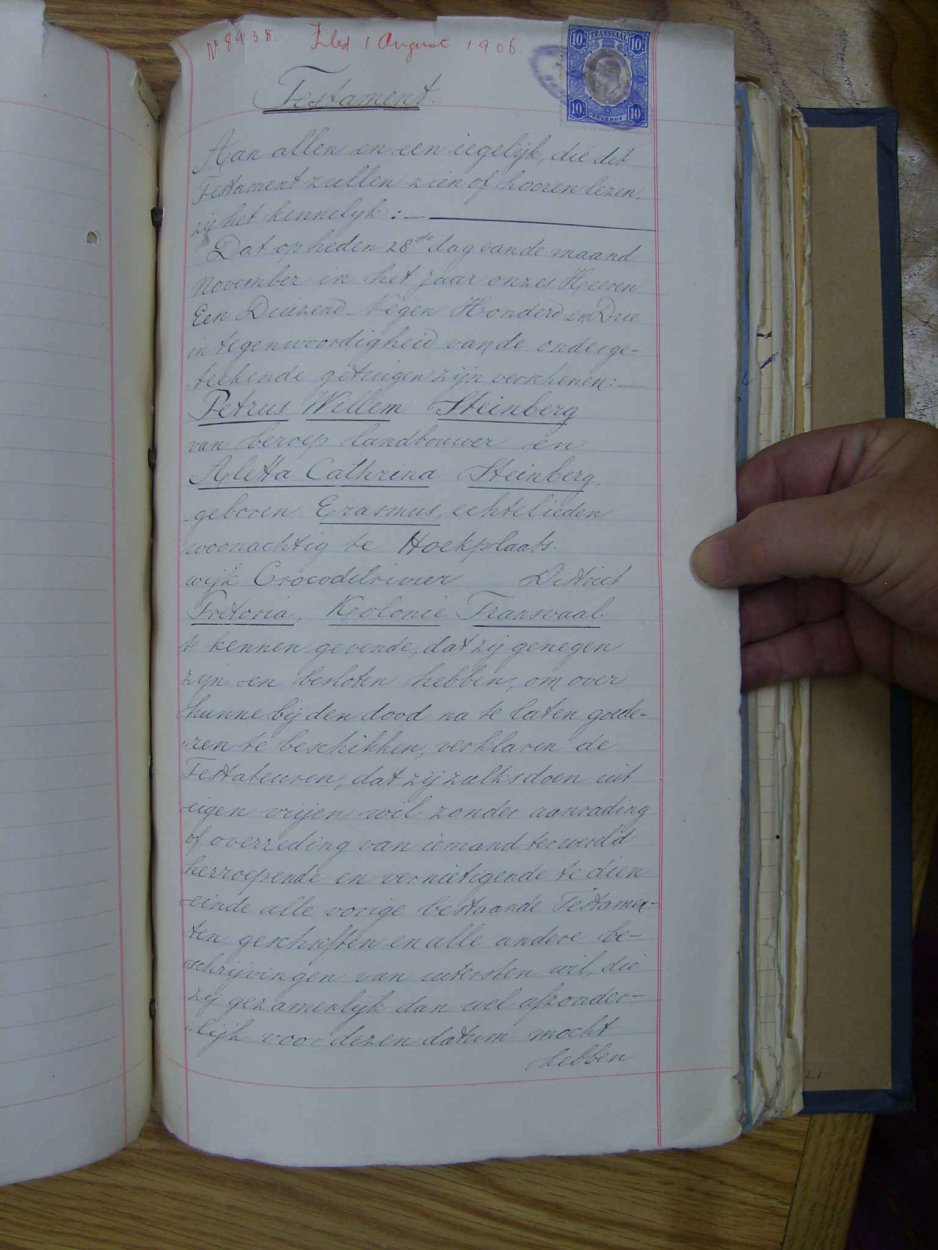 No 8938 Filed 1 August 1906.
10s TRANSVAAL 10s
10s REVENUE 10s
Testament.
Aan allen en een iegelijk, die dit
Testament zullen zien of hooren lezen,
zij het kennelijk: —
Dat op heden 28ste dag van de maand
November in het jaar onzes Heeren
Een Duizend Negen Honderd en Drie
in tegenwoordigheid van de onderge-
teekende getuigen zijn verschenen:—
Petrus Willem Steinberg
van beroep landbouwer en
Aletta Cathrina Steinberg,
geboren Erasmus, echtelieden
woonachtig te Hoekplaats
wijk Crocodilrivier District
Pretoria, Kolonie Transvaal
te kennen gevende, dat zij genegen
zijn en besloten hebben, om over
hunne bij den dood na te laten goede-
ren te beschikken, verklaren de
Testateuren, dat zij zulks doen uit
eigen vrijen wil, zonder aanrading
of overreding van iemand ter wereld
herroepende en vernietigende te dien
einde alle vorige bestaande Testamen-
ten, geschriften en alle andere be-
schrijvingen van uitersten wil, die
zij gezamenlijk dan wel afzonder-
lijk voor dezen datum mocht
hebben